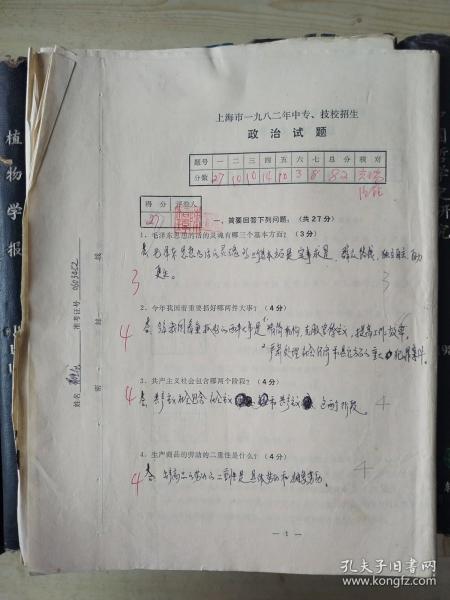 上海市一九八二年中专、技校招生
政治试题
题号 一 二 三 四 五 六 七 总分 核对
分数 27 10 10 14 10 3 8 82
得分 评卷人
27
一、简要回答下列问题：（共27分）
1、毛泽东思想的活的灵魂有哪三个基本方面？（3分）
答：毛泽东思想的活的灵魂的三个基本方面是实事求是，群众路线，独立自主
3
3
2、今年我国着重要抓好哪两件大事？（4分）
4
答：今年我国着重抓的两件大事是
精简机构，克服官僚主义，提高工作效率。
3、共产主义社会包含哪两个阶段？（4分）
4
答：共产主义社会包含社会主义
和共产主义
两个阶段。
4
4、生产商品的劳动的二重性是什么？（4分）
4
答：生产商品的劳动的二重性是具体劳动和抽象劳动。
4
— 1 —
姓名
准考证号
密封线
植物学报
中国哲学史研究
孔夫子旧书网
book.kongfz.com